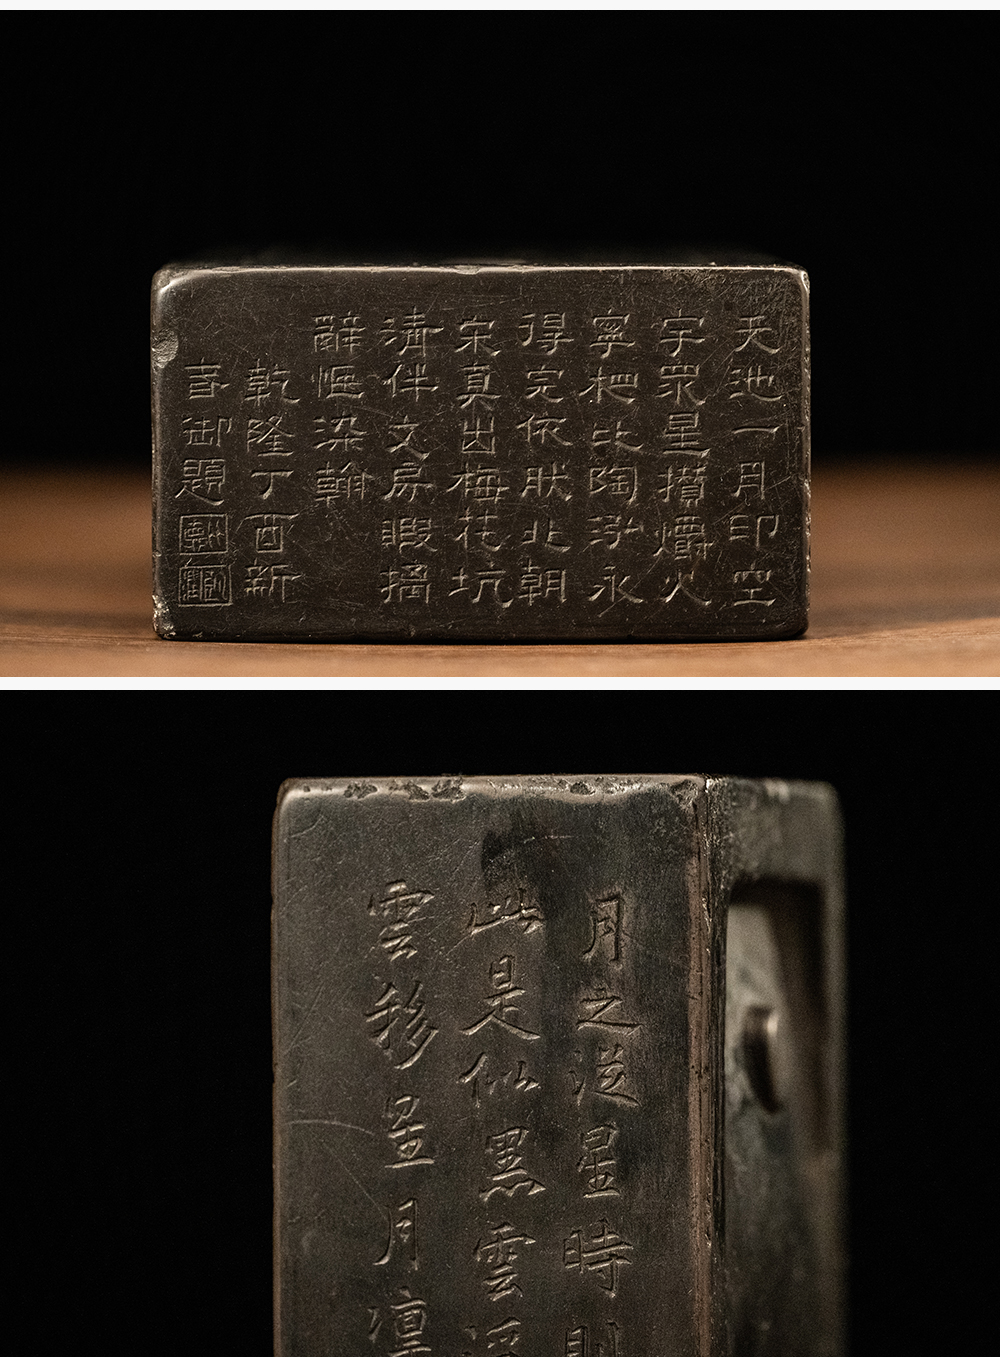 天池一月印空
宇眾星攢爝火
寧把比陶泓永
得完依肰北朝
宋真出梅花坑
清伴文房暇摛
辭惬染翰
乾隆丁酉新
春御題
月之從星時則
此是似黑雲
雲移星月凜